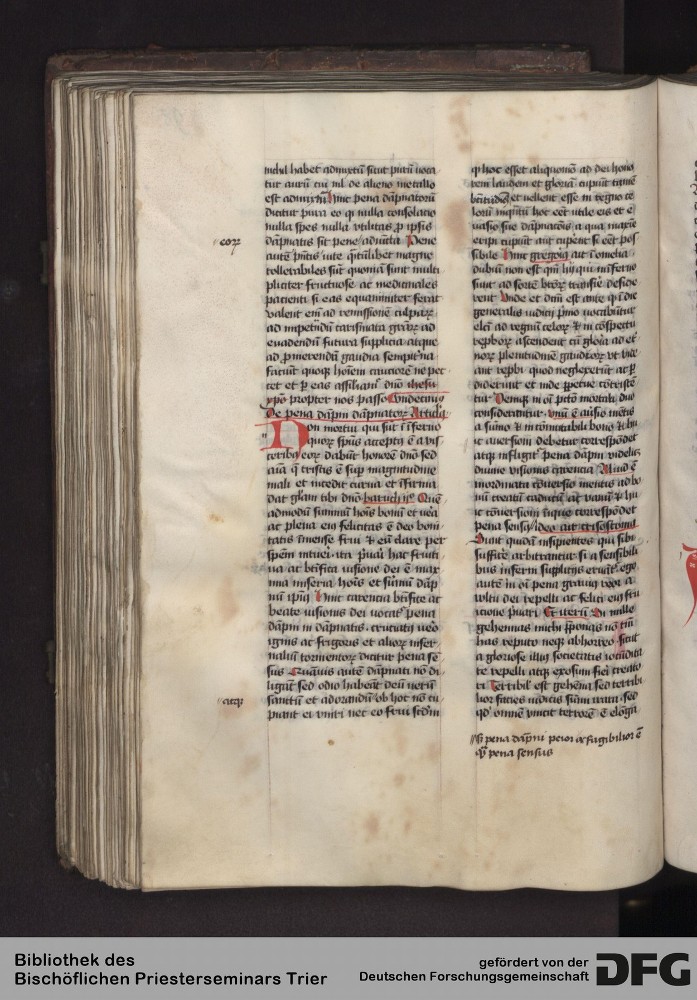 nichil habet admixtum sicut purum voca
tur aurum cui nil de alieno metallo
est admixtum hinc pena dampnatorum
dicitur pura eo quod nulla consolacio
nulla spes nulla utilitas pro ipsis
dampnatis sit pene adiuncta Pene
autem presentis vite quantumlibet magne
tollerabiles sunt quoniam sunt multi
pliciter fructuose ac medicinales
pacienti si eas equanimiter ferat
valent enim ad remissionem culparum
ad impetrandum carismata graciarum ad
evadendum futura supplicia atque
ad promerendum gaudia sempiterna
faciunt quoque hominem cauciorem ne pec
cet et per eas assimilari domino ihesu
christo propter nos passo Undecimus
De pena dampni dampnatorum Articulus
Non mortui qui sunt in inferno
quorum spiritus acceptus est a vis
ceribus eorum dabunt honorem domino sed
anima que tristis est super magnitudine
mali et incedit curva et infirma
dat gloriam tibi domino baruch ii Quem
admodum summum hominis bonum et vera
ac plena eius felicitas est deo boni
tatis immense frui et eum clare per
speciem intueri ita privari hac fruiti
va ac beatifica visione dei est maxi
ma miseria hominis et summum damp
num ipsius hinc carencia beatifice ac
beate visionis dei vocatur pena
dampni in dampnatis cruciatus vero
ignis ac frigoris et aliorum infer
nalium tormentorum dicitur pena sen
sus Quamvis autem dampnati non di
ligant sed odio habeant deum verum
sanctum et adorandum ob hoc non cu
piant ei uniri nec eo frui secundum
eorum
atque
quod hoc esset aliquomodo ad dei hono
rem laudem et gloriam cupiunt tamen
beatitudinem et vellent esse in regno ce
lorum inquantum hoc esset utile eis et e
vasio sue dampnacionis a qua maxime
eripi cupiunt aut cuperent si esset pos
sibile hinc gregorius ait in omelia
dubium non est quin hii qui in inferno
sunt ad sortem beatorum transire deside
rent Unde et divitem est ante quam in die
generalis iudicii primo vocabuntur
electi ad regnum celorum et in conspectu
reproborum ascendent cum gloria ad eter
norum plenitudinem gaudiorum ut vide
ant reprobi quod neglexerunt ac per
diderunt et inde perpetue contristen
tur Denique in omni peccato mortali duo
considerantur unum est aversio mentis
a summo et incommutabili bono et huic
aversioni debetur correspondet
atque infligitur pena dampni videlicet
divine visionis carencia Aliud est
inordinata conversio mentis ad bo
num creatum caducum ac vanum et hu
ic conversioni eique correspondet
pena sensus Ideo ait crisostomus
Sunt quidam insipientes qui sibi
sufficere arbitrantur si a sensibili
bus inferni suppliciis eruantur ego
autem in omni pena gravius reor a
vultu dei repelli ac felici eius fru
icione privari Et iterum Si mille
gehennas michi proponas non tantum
has reputo neque abhorreo sicut
a gloriose illius societatis iocundita
te repelli atque exosum fieri creato
ri Terribilis est gehenna sed terribi
lior facies iudicis summi irata sed
quod omnem vincit terrorem est elonga
si pena dampni peior et fugibilior est
quam pena sensus
Bibliothek des
Bischöflichen Priesterseminars Trier
gefördert von der
Deutschen Forschungsgemeinschaft
DFG